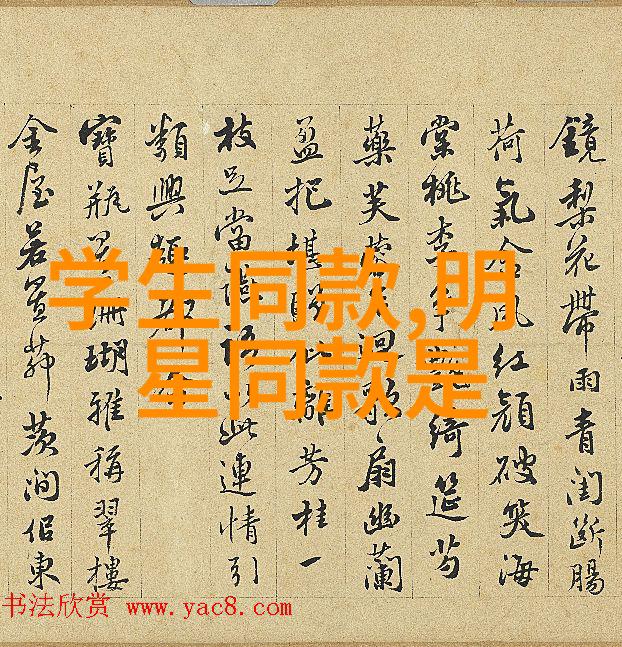 鏡梨花帶雨青閨斷腸
荷氣含風紅顏破笑海
棠桃李爭綺筵芍
藥芙蓉迴歌扇幽蘭
盈把堪似離芳桂一
枝足當語以此連情引
類興
寶瓶珊瑚雅稱翠樓
金屋若置茨澗侶東
学生同款,明
星同款是
书法欣赏 www.yac8.com